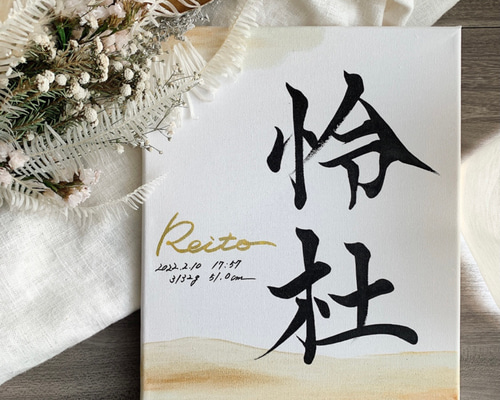 怜杜
Reito
2022.2.10 17:57
3132g 51.0cm